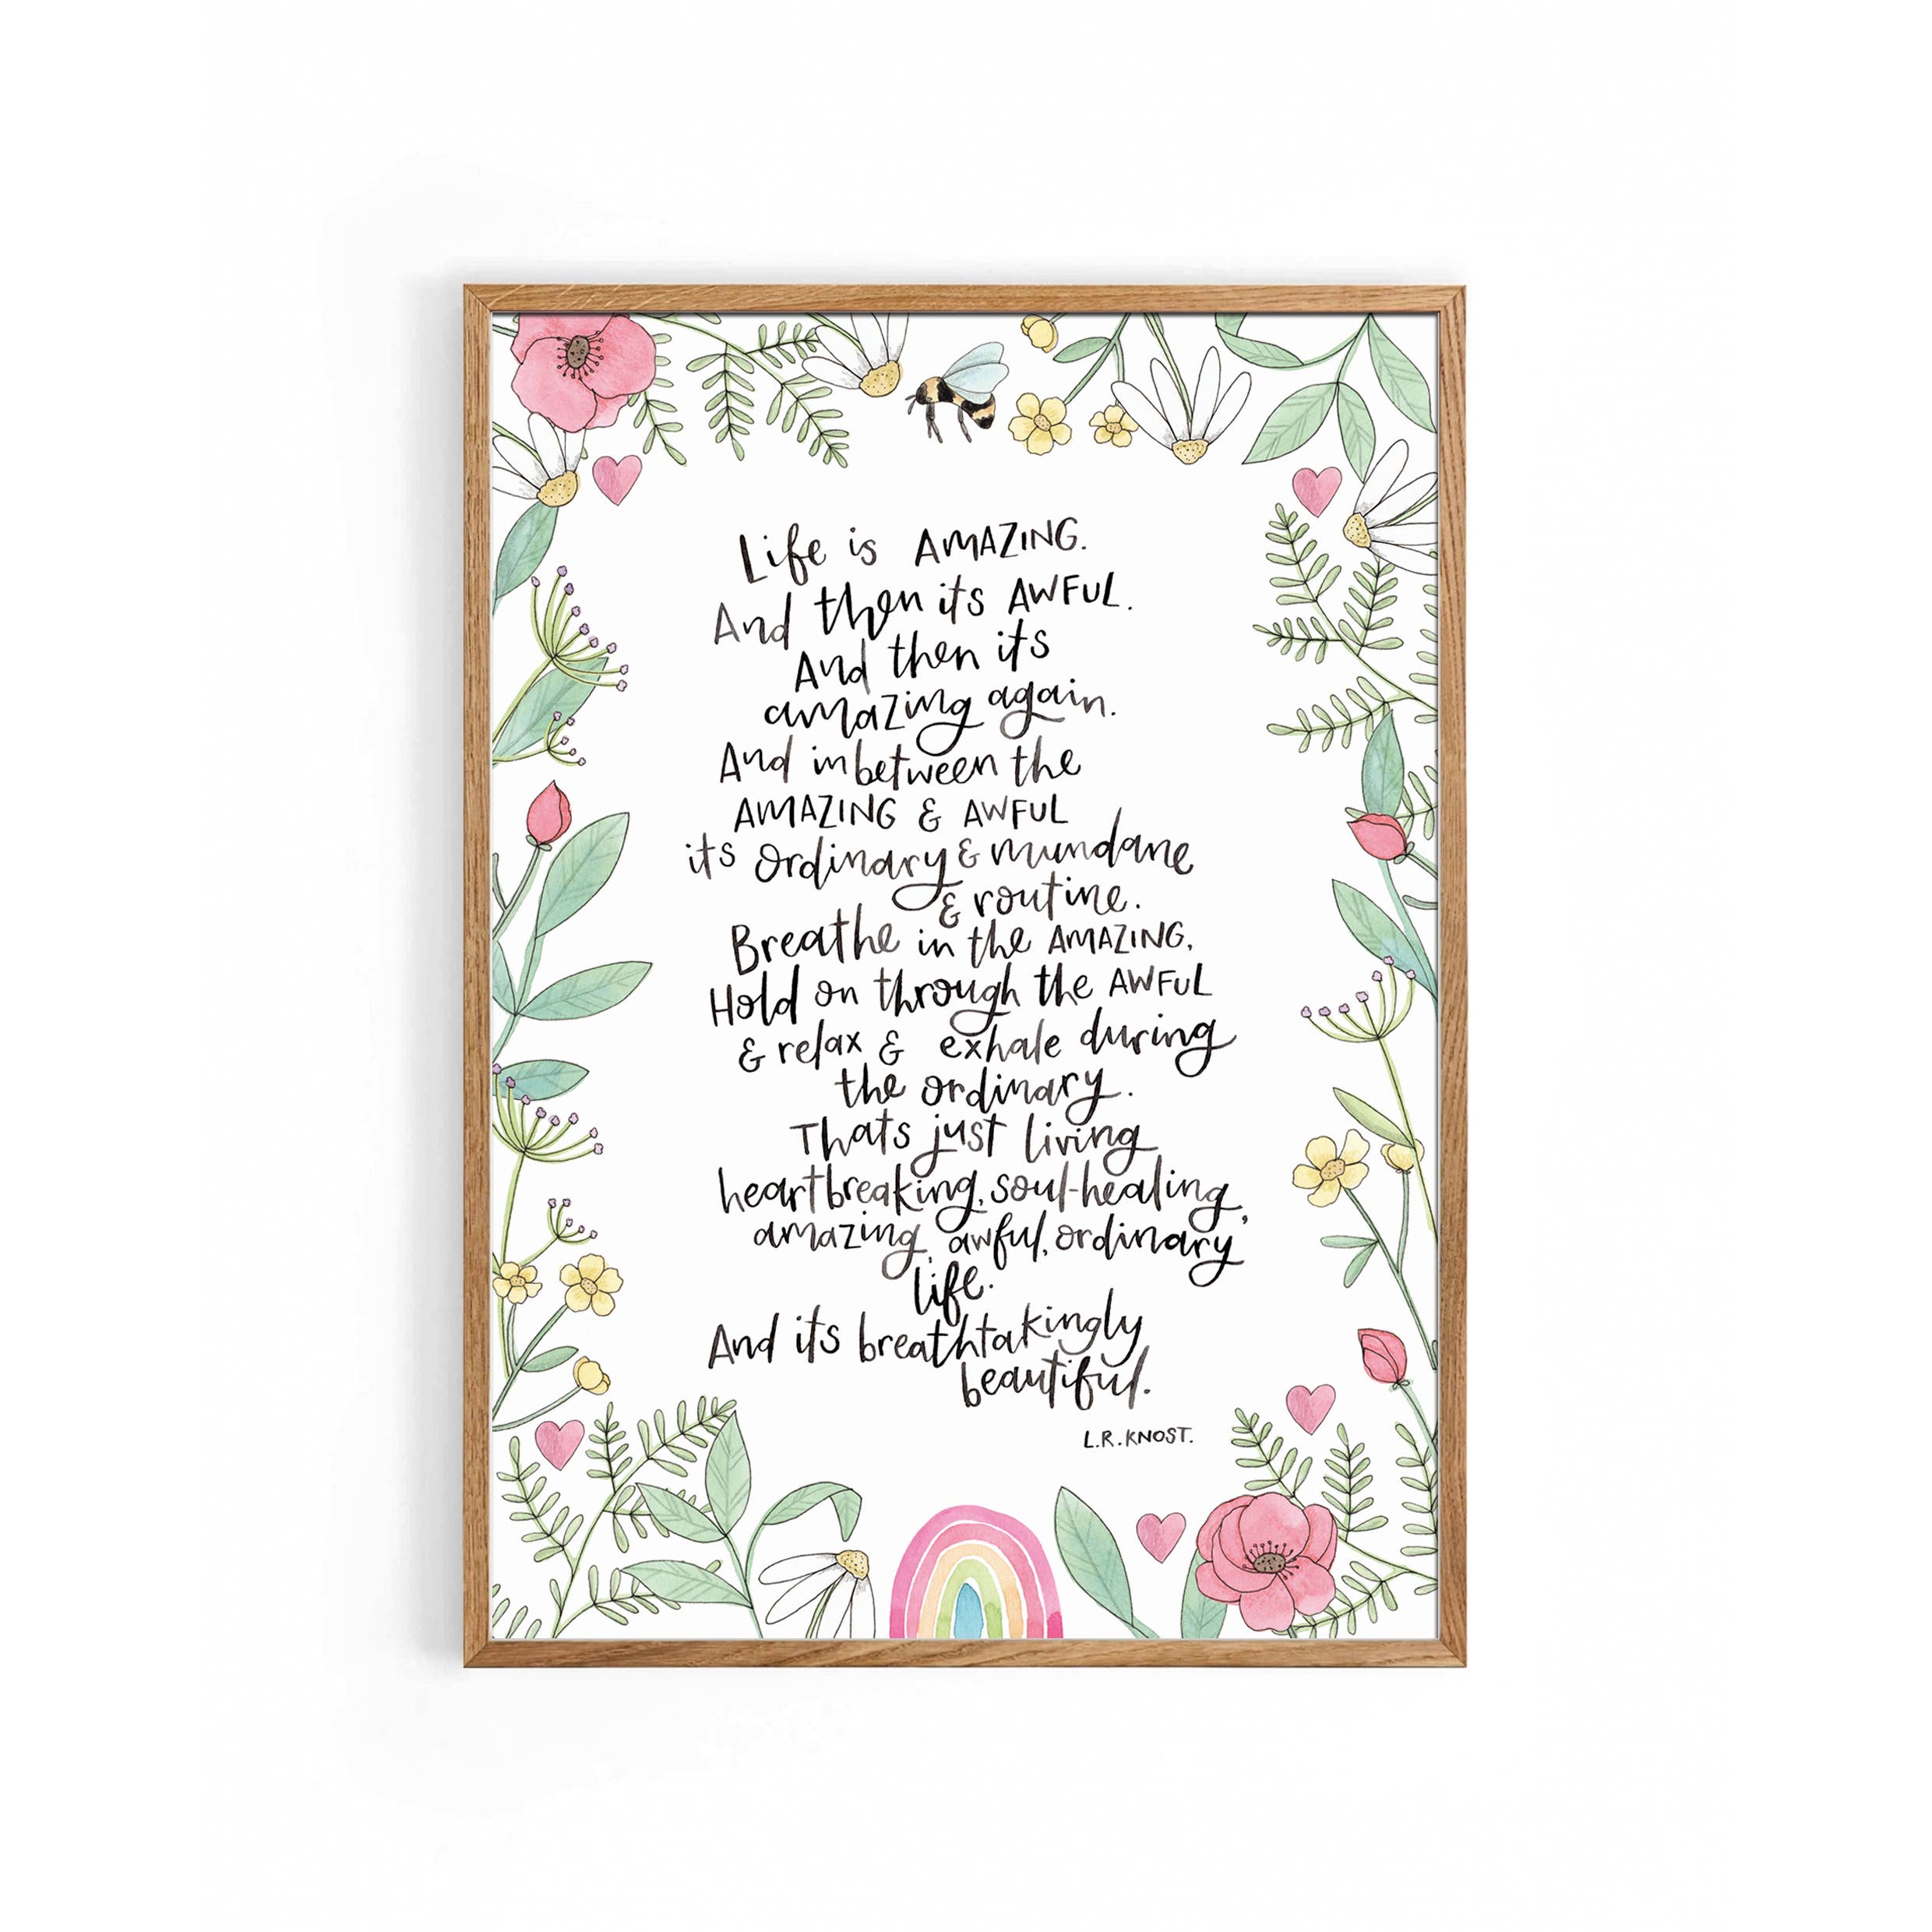 Life is AMAZING.
And then its AWFUL.
And then its
amazing again.
And inbetween the
AMAZING & AWFUL
its ordinary & mundane
& routine.
Breathe in the AMAZING,
Hold on through the AWFUL
& relax & exhale during
the ordinary.
Thats just living
heartbreaking, soul-healing,
amazing, awful, ordinary
life.
And its breathtakingly
beautiful.
L.R.KNOST.